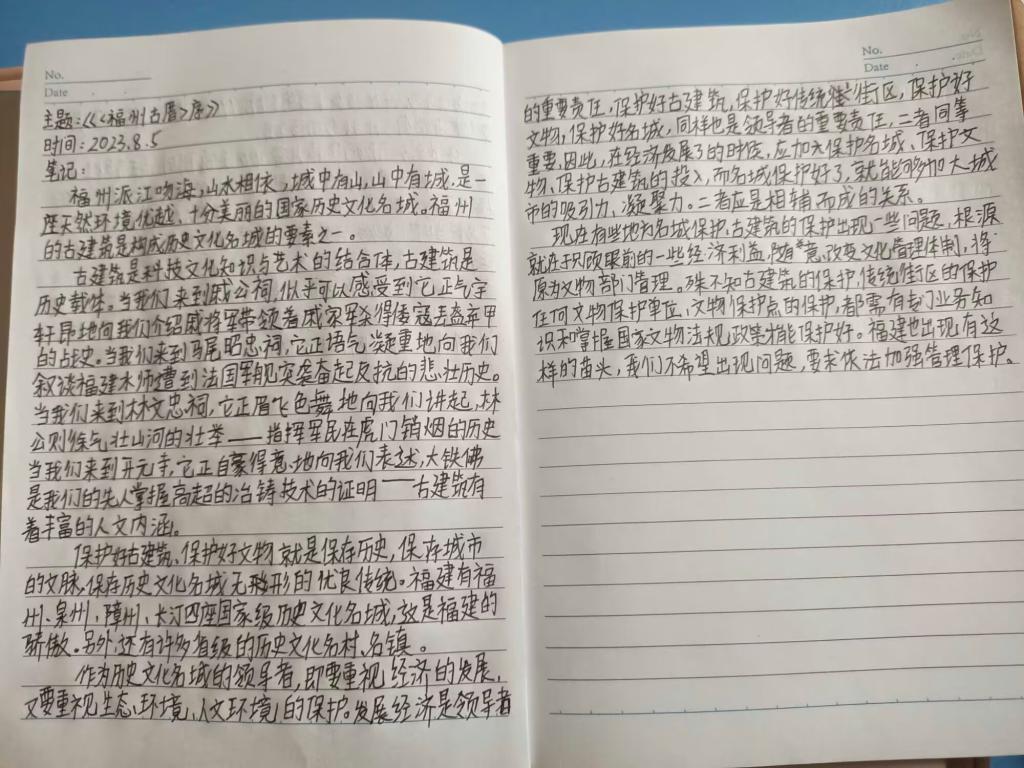 No.
Date
主题:《<福州古厝>序》
时间:2023.8.5
笔记:
福州派江吻海,山水相依,城中有山,山中有城,是一
座天然环境优越、十分美丽的国家历史文化名城。福州
的古建筑是构成历史文化名城的要素之一。
古建筑是科技文化知识与艺术的结合体,古建筑是
历史载体。当我们来到戚公祠,似乎可以感受到它正气宇
轩昂地向我们介绍戚将军带领着戚家军杀得倭寇丢盔弃甲
的战史。当我们来到马尾昭忠祠,它正语气凝重地向我们
叙谈福建水师遭到法国军舰突袭奋起反抗的悲壮历史。
当我们来到林文忠祠,它正眉飞色舞地向我们讲起,林
公则徐气壮山河的壮举——指挥军民在虎门销烟的历史
当我们来到开元寺,它正自豪得意地向我们表述,大铁佛
是我们的先人掌握高超的冶铸技术的证明——古建筑有
着丰富的人文内涵。
保护好古建筑、保护好文物就是保存历史,保存城市
的文脉,保存历史文化名城无形的优良传统。福建有福
州、泉州、漳州、长汀四座国家级历史文化名城,这是福建的
骄傲。另外,还有许多省级的历史文化名村、名镇。
作为历史文化名城的领导者,即要重视经济的发展,
又要重视生态、环境、人文环境的保护。发展经济是领导者
No.
Date
的重要责任,保护好古建筑,保护好传统街区,保护好
文物,保护好名城,同样也是领导者的重要责任,二者同等
重要。因此,在经济发展了的时候,应加大保护名城、保护文
物、保护古建筑的投入,而名城保护好了,就能够加大城
市的吸引力、凝聚力。二者应是相辅而成的关系。
现在有些地方名城保护、古建筑的保护出现一些问题,根源
就在于只顾眼前的一些经济利益,随意改变文化管理体制,将
原为文物部门管理。殊不知古建筑的保护,传统街区的保护
任何文物保护单位,文物保护点的保护,都需有专门业务知
识和掌握国家文物法规,政策才能保护好。福建也出现有这
样的苗头,我们不希望出现问题,要求依法加强管理保护。